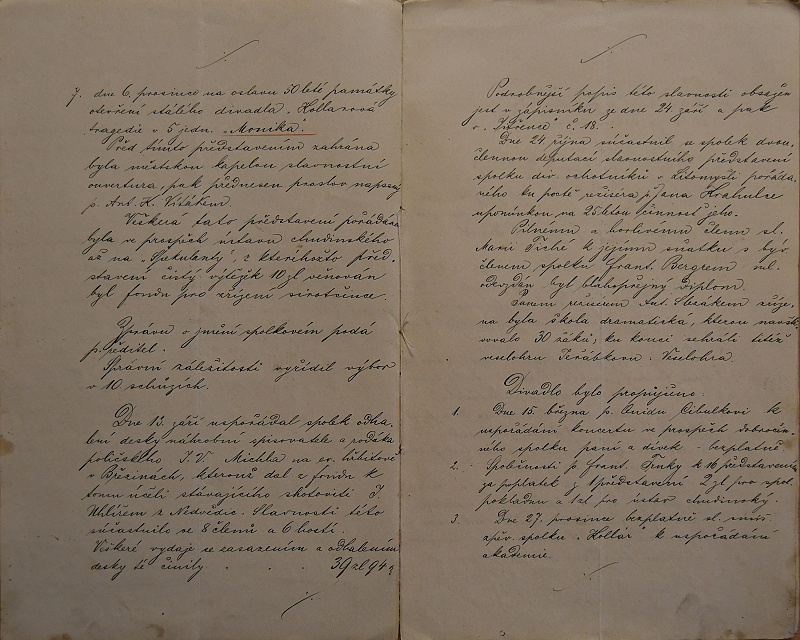 7. dne 6. prosince na oslavu 50 leté památky
otevření stálého divadla „Kollarova
tragedie v 5 jedn. „Monika".
Před tímto představením zahrána
byla městskou kapelou slavnostní
ouvertura, pak přednesen proslov napsaný
p. Ant. K. Vitákem.
Veškerá tato představení pořádána
byla ve prospěch ústavu chudinského
až na z kteréhožto před
stavení čistý výtěžek 10 zl věnován
byl fondu pro zřízení sirotčince.
Zprávu o jmění spolkovém podá
p. ředitel.
Správní záležitosti vyřídil výbor
v 10 schůzích.
Dne 13. září uspořádal spolek odha-
lení desky náhrobní spisovatele a rodáka
poličského J. V. Michla na ev. hřbitově
v Březinách, kterouž dal z fondu k
tomu účeli stávajícího zhotoviti J.
Uhlířem z Nedvědic. Slavnosti této
súčastnilo se 8 členů a 6 hostí.
Veškeré vydaje se zasazením a odhalením
desky té činily . . . 39 zl 94
Podrobnější popis této slavnosti obsažen
jest v zápisníku ze dne 24. září a pak
v č. 18.
Dne 24 října súčastnil se spolek dvou-
člennou deputací slavnostního představení
spolku div. ochotníků v Litomyšli pořáda-
ného ku poctě režiséra p. Jana Hrahulce
upomínkou na 25 letou činnost jeho.
Pilnému a horlivému členu sl.
Marii Tiché k jejímu sňatku s býv.
členem spolku Frant. Bergrem ml.
odevzdán byl blahopřejný diplom.
Panem režisérem Ant. zříze-
na byla škola dramatická, kterou navště-
vovalo 30 žáků; ku konci sehráli titéž
veselohru Jeřábkovu: Veselohra.
Divadlo bylo propůjčeno:
1. Dne 15. března p. Quidu Cibulkovi k
uspořádání koncertu ve prospěch dobročin-
ného spolku paní a dívek - bezplatně
2. Společnosti p. Frant. Trnky k 16 představením
za poplatek z 1 představení 2 zl pro spol.
pokladnu a 1 zl pro ústav chudinský.
3. Dne 27. prosince bezplatně sl.
zpěv. spolku „Kollár" k uspořádání
akademie.